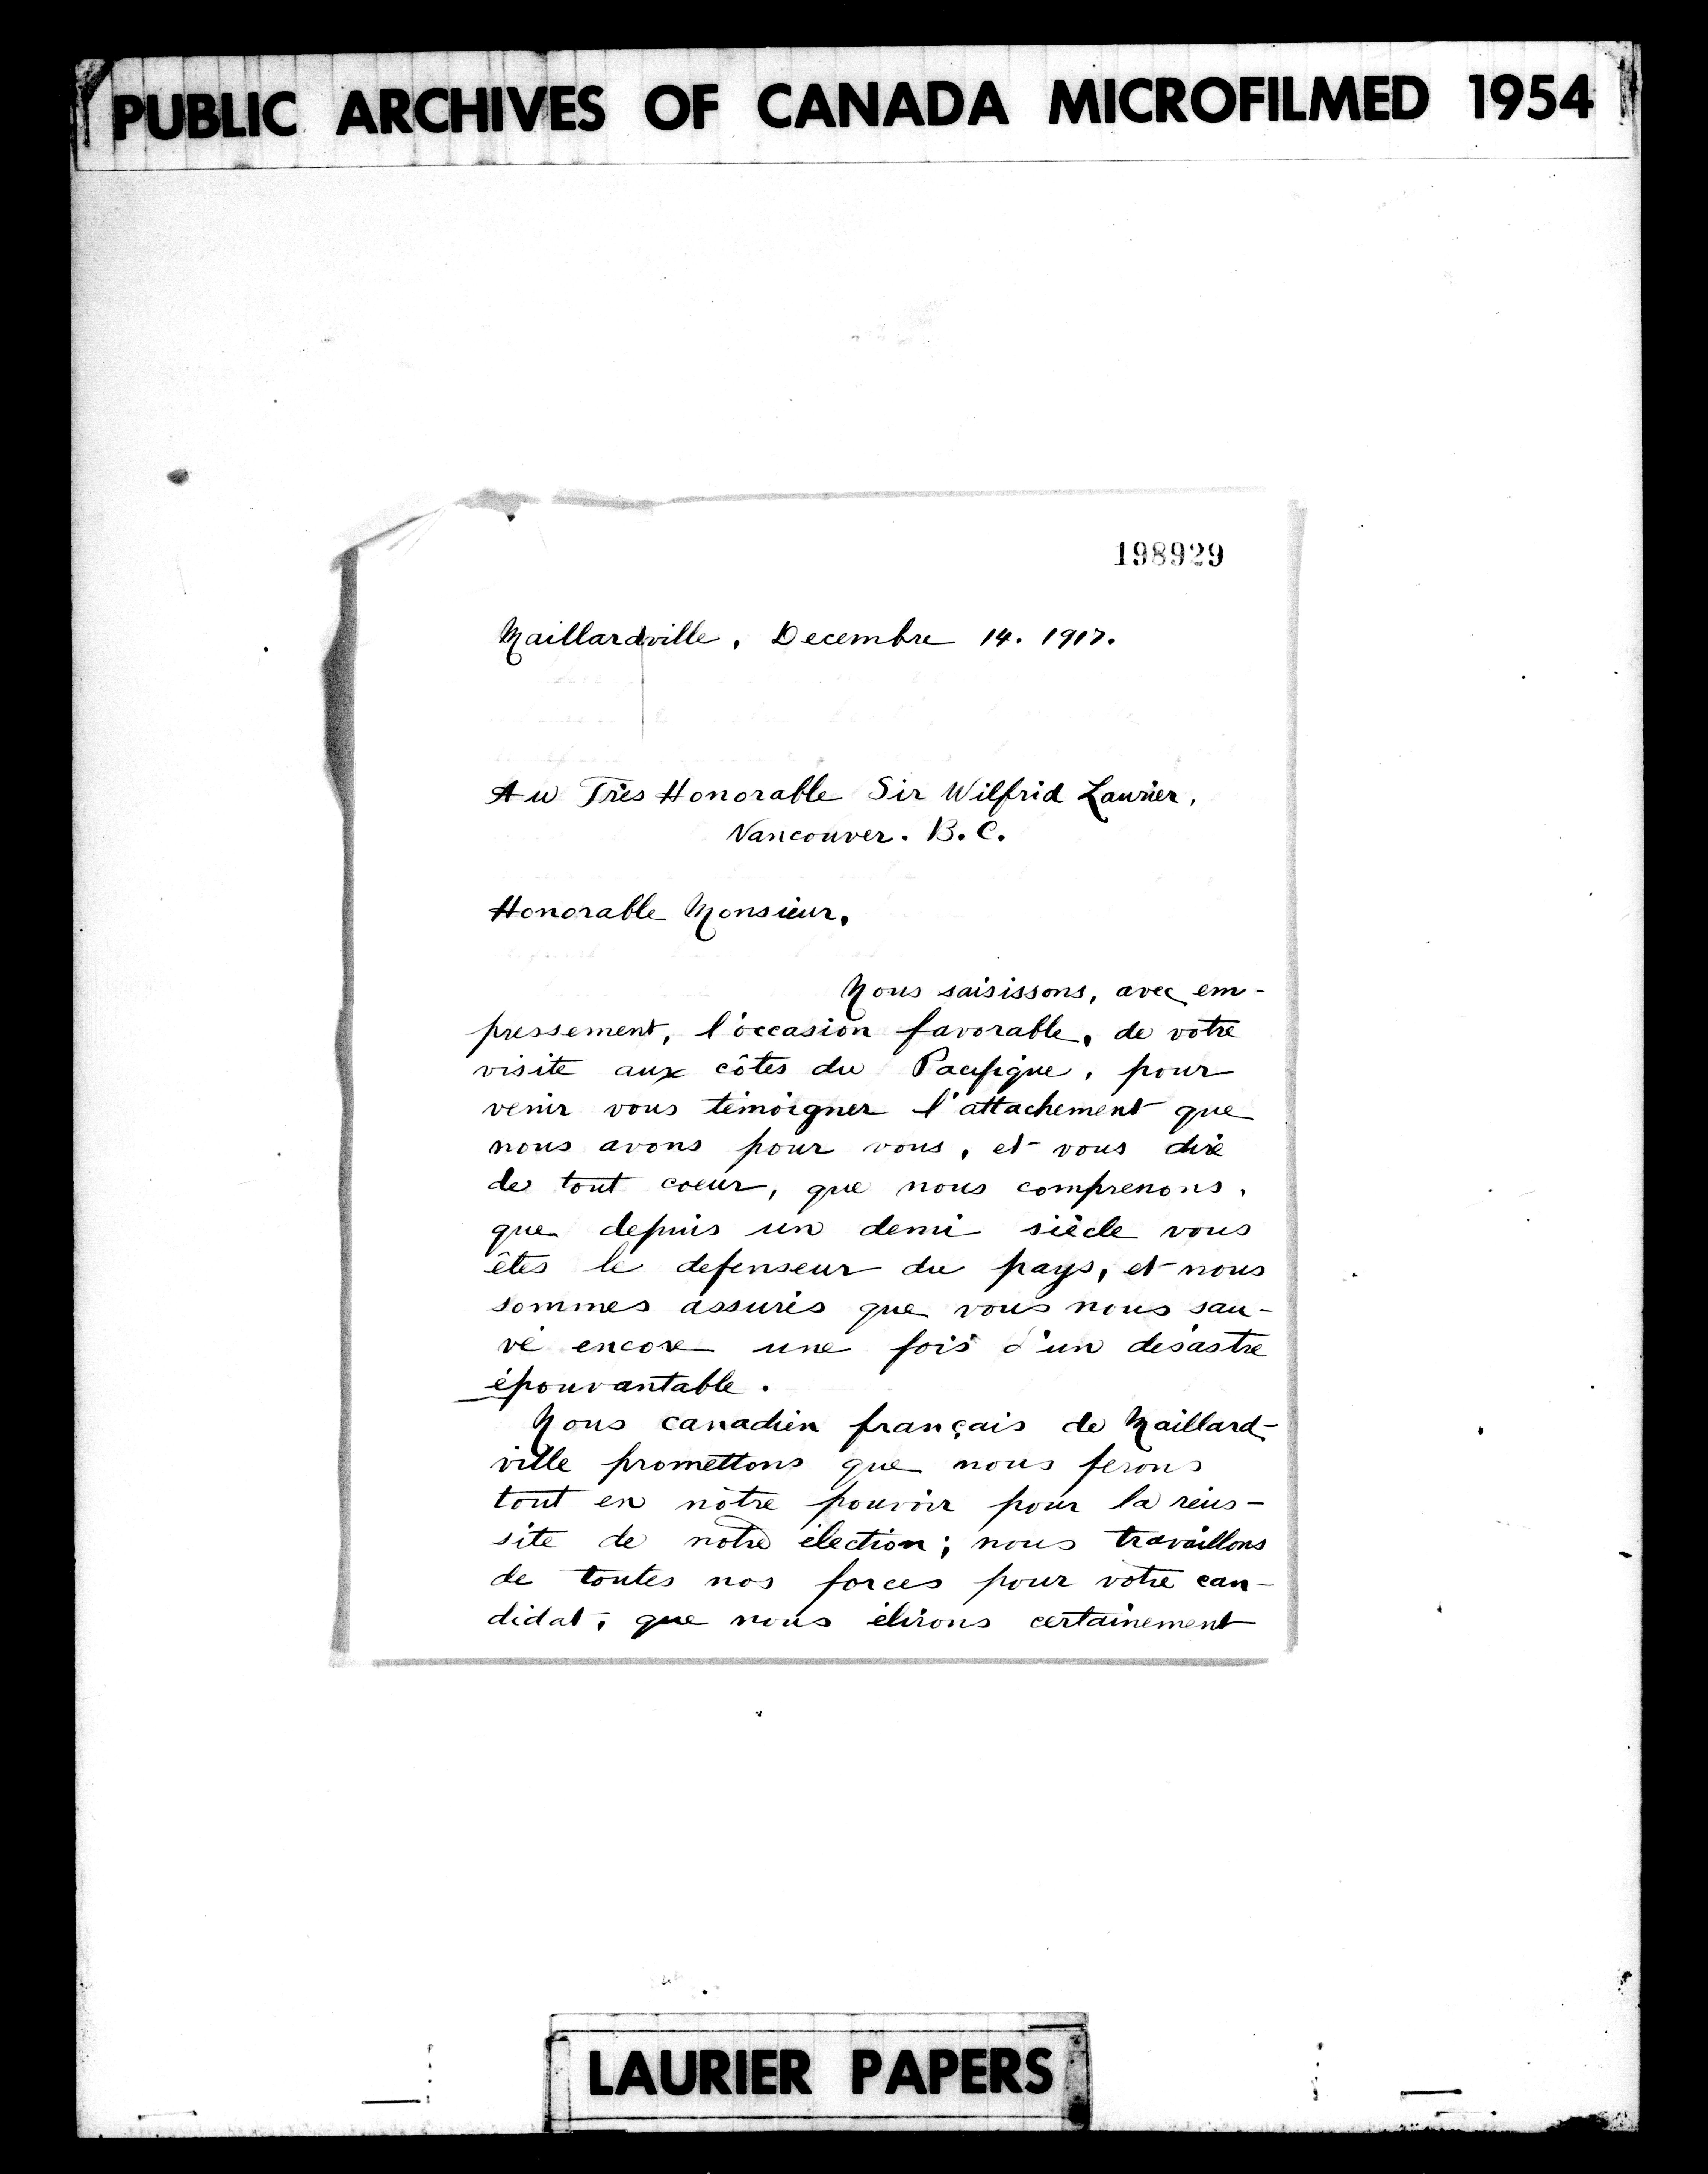 PUBLIC ARCHIVES OF CANADA MICROFILMED 1954
198929
Maillardville, Decembre 14. 1917.
Au Très Honorable Sir Wilfrid Laurier,
Vancouver. B.C.
Honorable Monsieur,
Nous saisissons, avec em-
pressement, l'occasion favorable, de votre
visite aux côtes du Pacifique, pour
venir vous témoigner l'attachement que
nous avons pour vous, et vous dire
de tout coeur, que nous comprenons,
que depuis un demi siècle vous
êtes le defenseur du pays, et nous
sommes assurés que vous nous sau-
vé encore une fois d'un désastre
épouvantable.
Nous canadien français de Maillard-
ville promettons que nous ferons
tout en nôtre pouvoir pour la réus-
site de notre élection; nous travaillons
de toutes nos forces pour votre can-
didat, que nous élirons certainement
LAURIER PAPERS